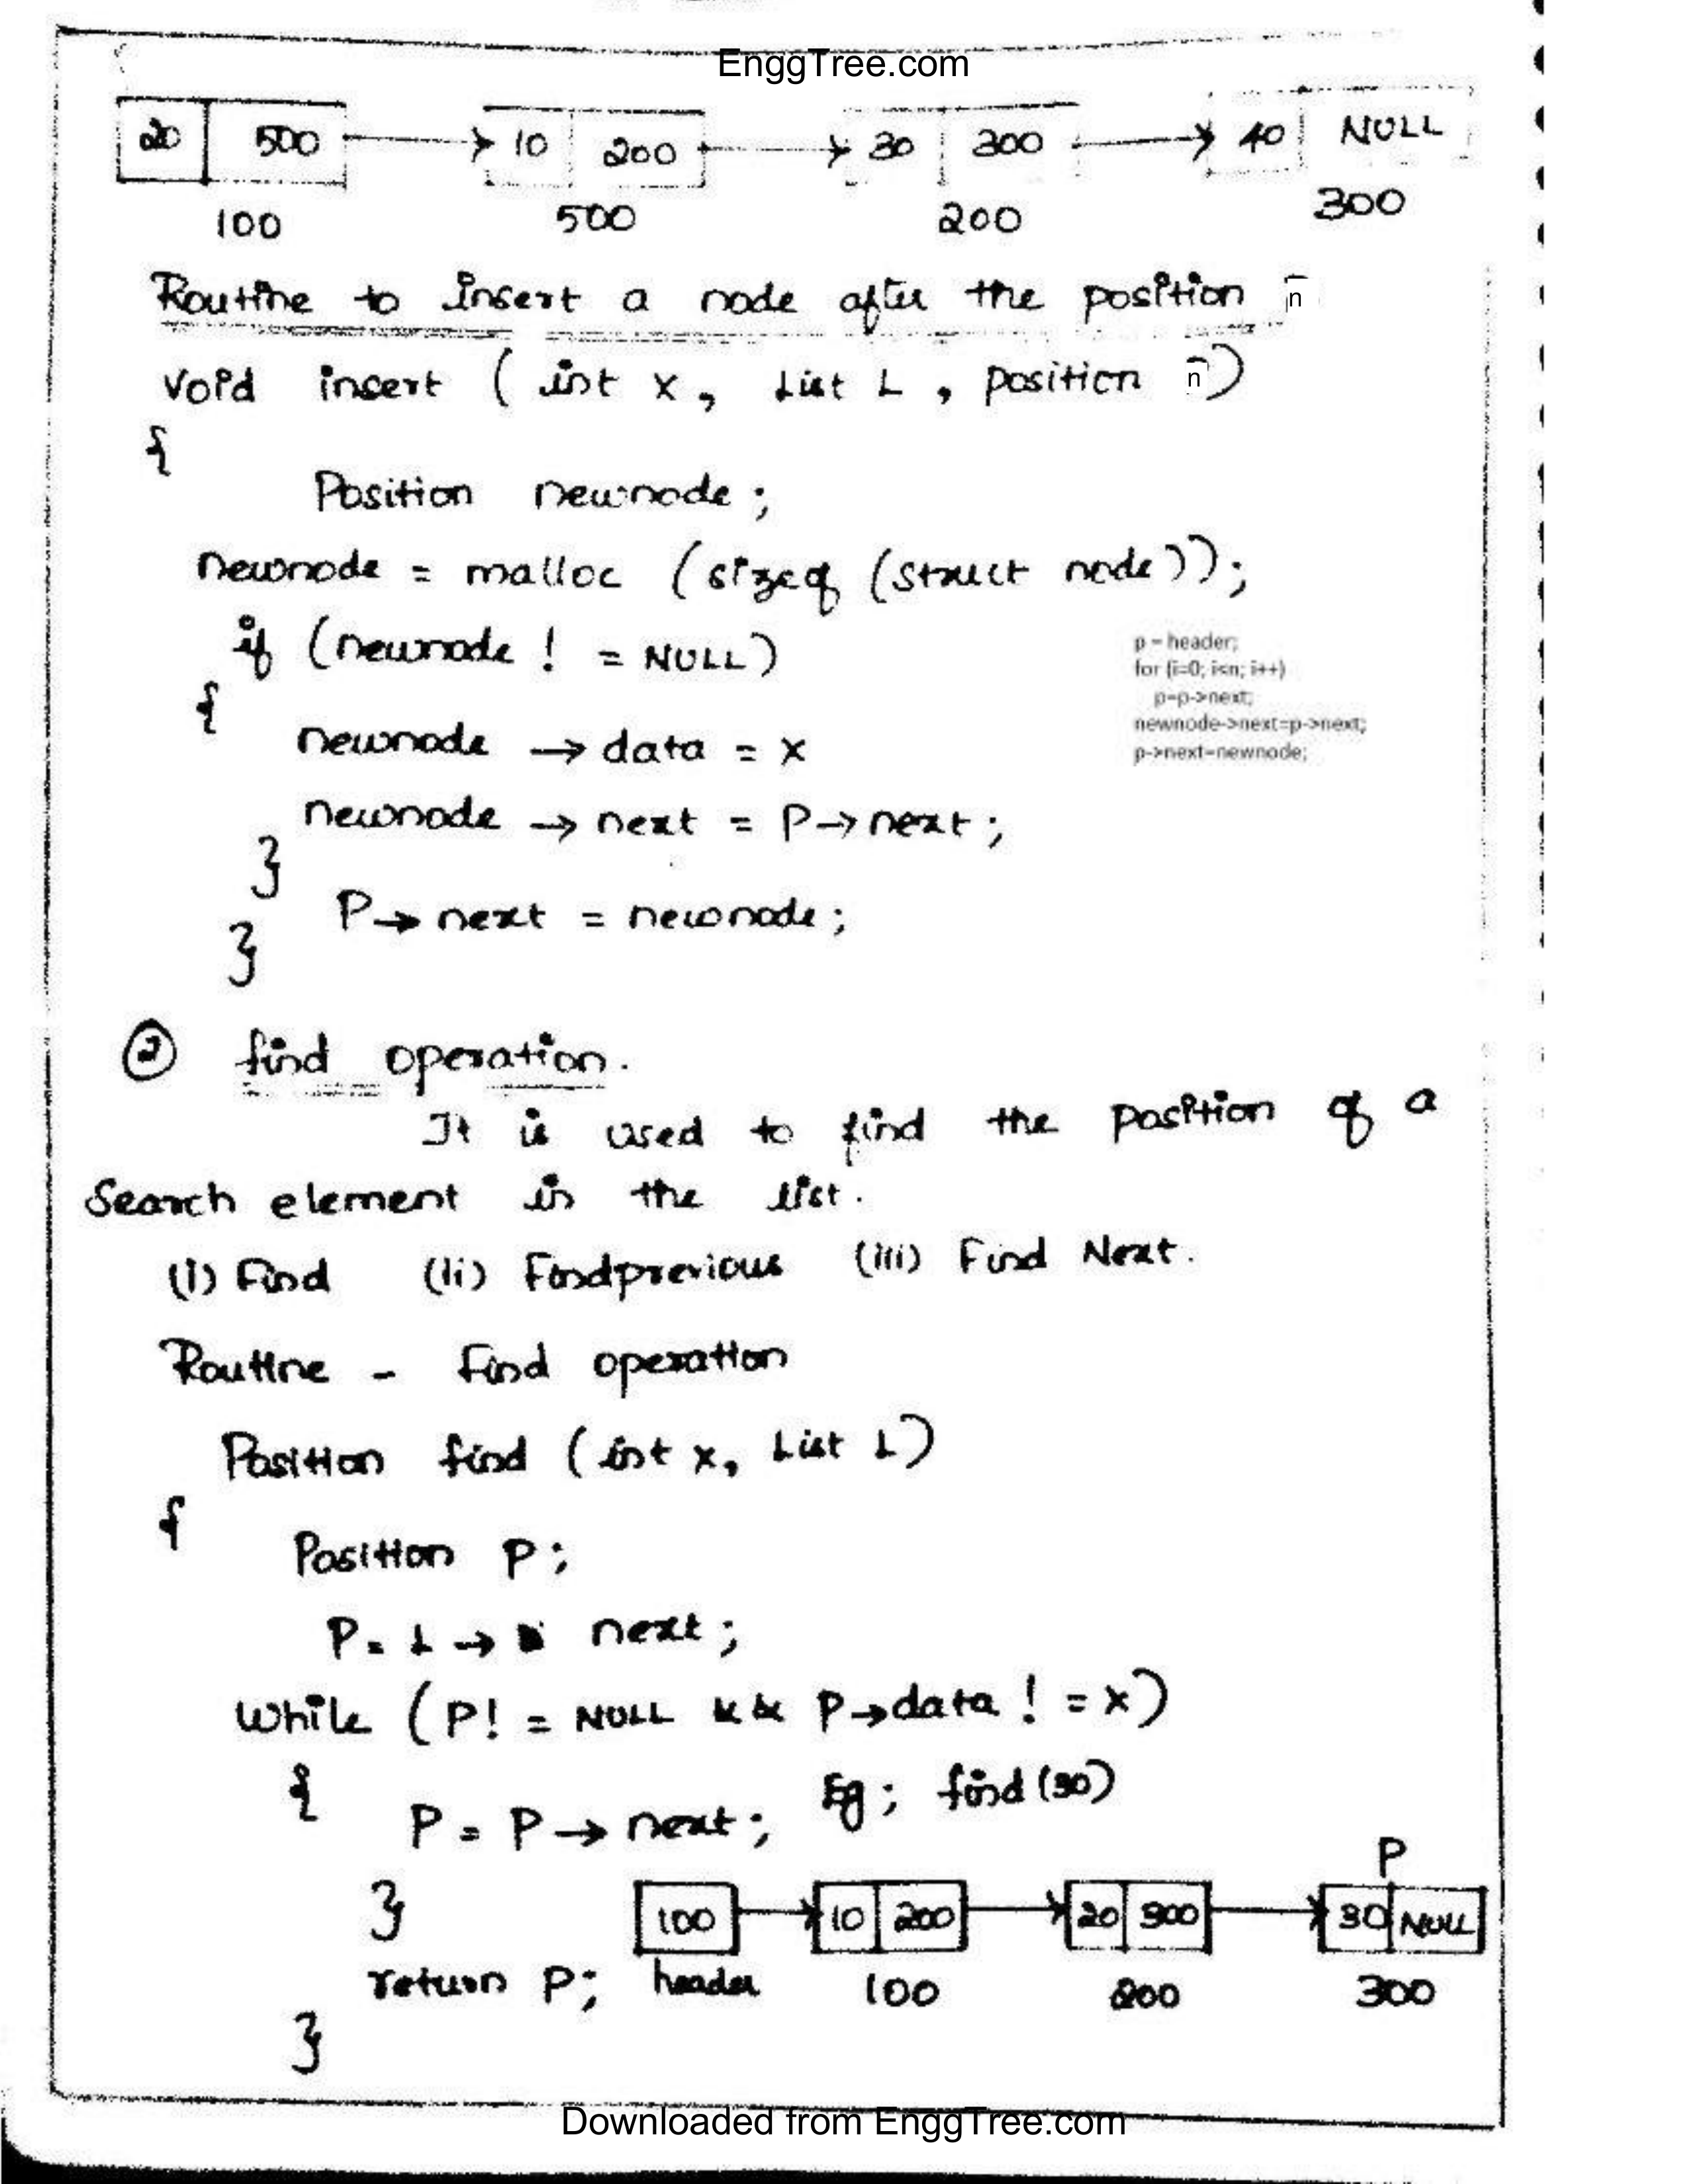 EnggTree.com
20 500 → 10 200 → 30 300 → 40 NULL
100 500 200 300
Routine to insert a node after the position n
Void insert ( int x, List L, position n)
{
Position newnode ;
newnode = malloc (sizeof (struct node));
if (newnode ! = NULL)
{
newnode → data = x
newnode → next = P→ next ;
}
P→ next = newnode ;
}
p = header;
for (i=0; i<n; i++)
p=p->next;
newnode->next=p->next;
p->next=newnode;
② find operation.
It is used to find the position of a
Search element in the list.
(i) Find (ii) Findprevious (iii) Find Next.
Routine - Find operation
Position find (int x, List L)
{
Position P ;
P = L → next ;
While (P! = NULL && P→data ! = x)
{
P = P → next ; Eg ; find (30)
P
} 100 → 10 200 → 20 300 → 30 NULL
return P; header 100 200 300
}
Downloaded from EnggTree.com